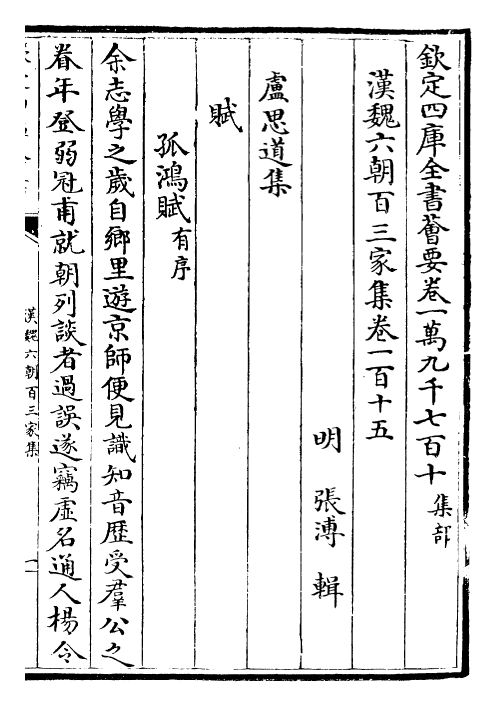 欽定四庫全書薈要卷一萬九千七百十 集部
漢魏六朝百三家集卷一百十五
明 張溥 輯
盧思道集
賦
孤鴻賦有序
余志學之歲自鄉里遊京師便見識知音歷受羣公之
眷年登弱冠甫就朝列談者過誤遂竊虛名通人楊令
漢魏六朝百三家集
一